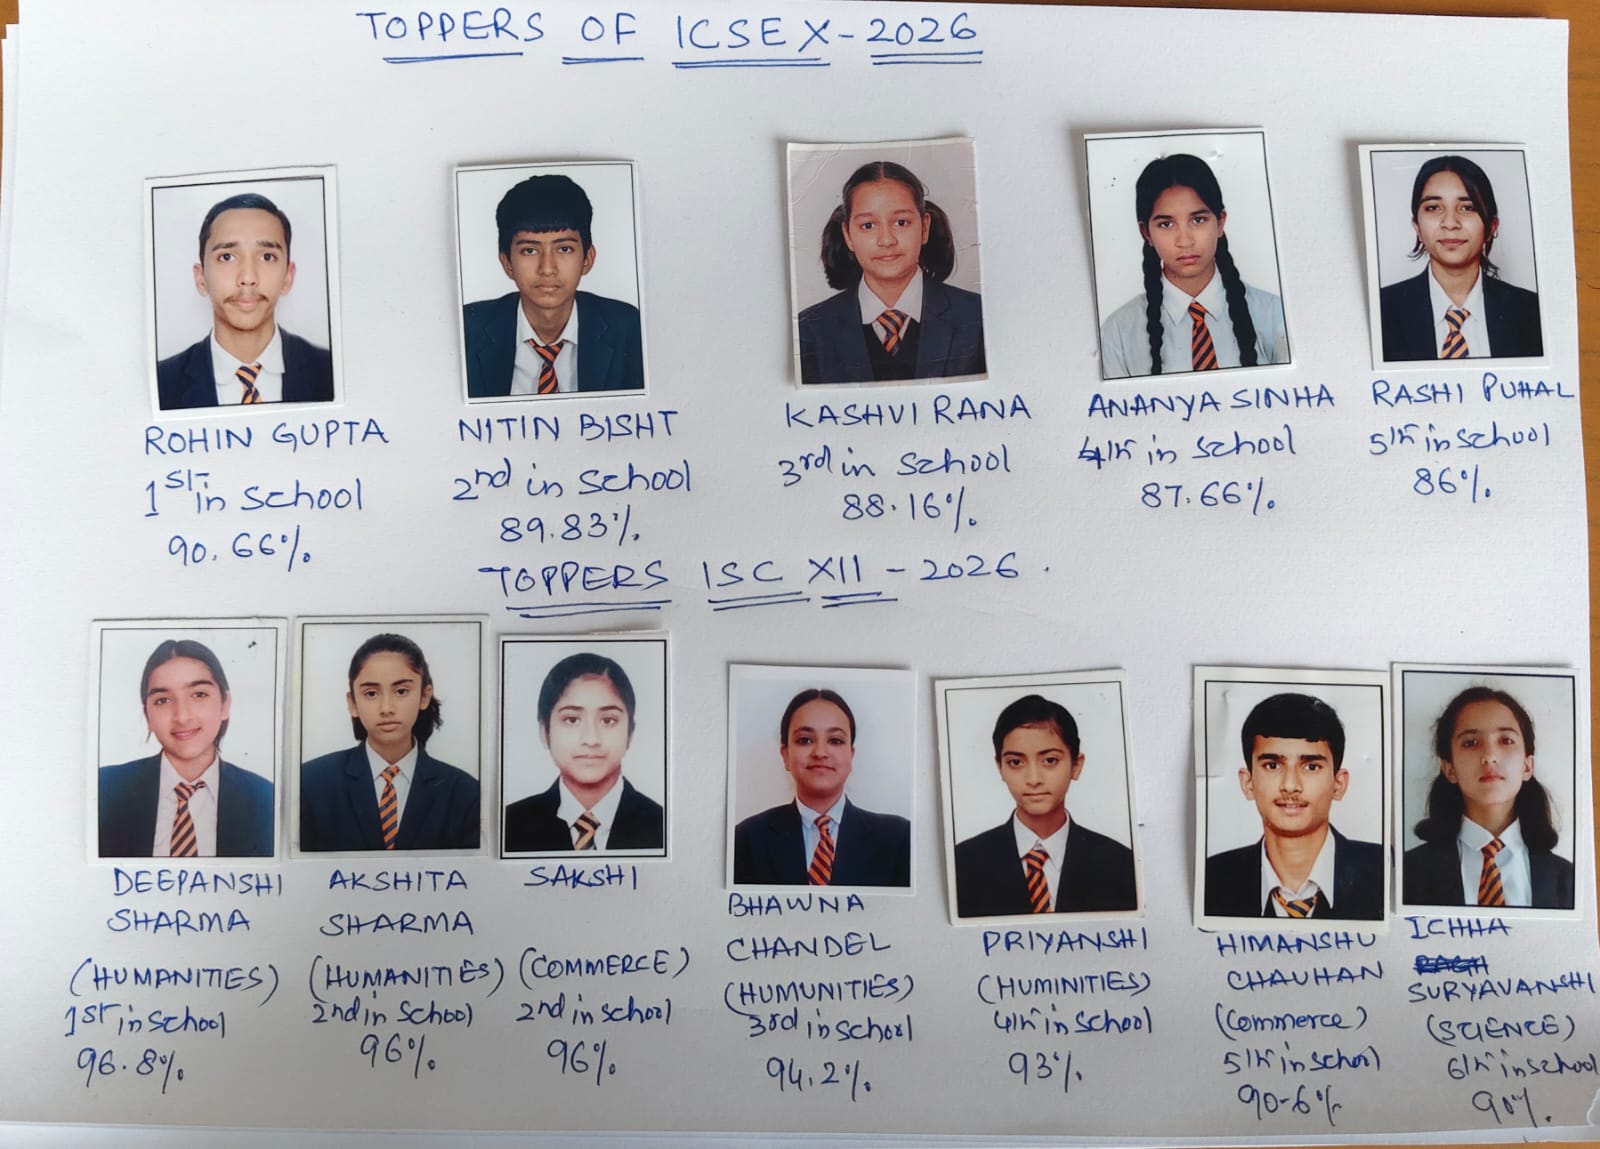 TOPPERS OF ICSE X - 2026
ROHIN GUPTA
1st in School
90.66%
NITIN BISHT
2nd in School
89.83%
KASHVI RANA
3rd in School
88.16%
ANANYA SINHA
4th in School
87.66%
RASHI PUHAL
5th in School
86%
TOPPERS ISC XII - 2026
DEEPANSHI
SHARMA
(HUMANITIES)
1st in School
96.8%
AKSHITA
SHARMA
(HUMANITIES)
2nd in School
96%
SAKSHI
(COMMERCE)
2nd in School
96%
BHAWNA
CHANDEL
(HUMUNITIES)
3rd in School
94.2%
PRIYANSHI
(HUMINITIES)
4th in School
93%
HIMANSHU
CHAUHAN
(Commerce)
5th in School
90-6%
ICHHA
SURYAVANSHI
(SCIENCE)
6th in School
90%.